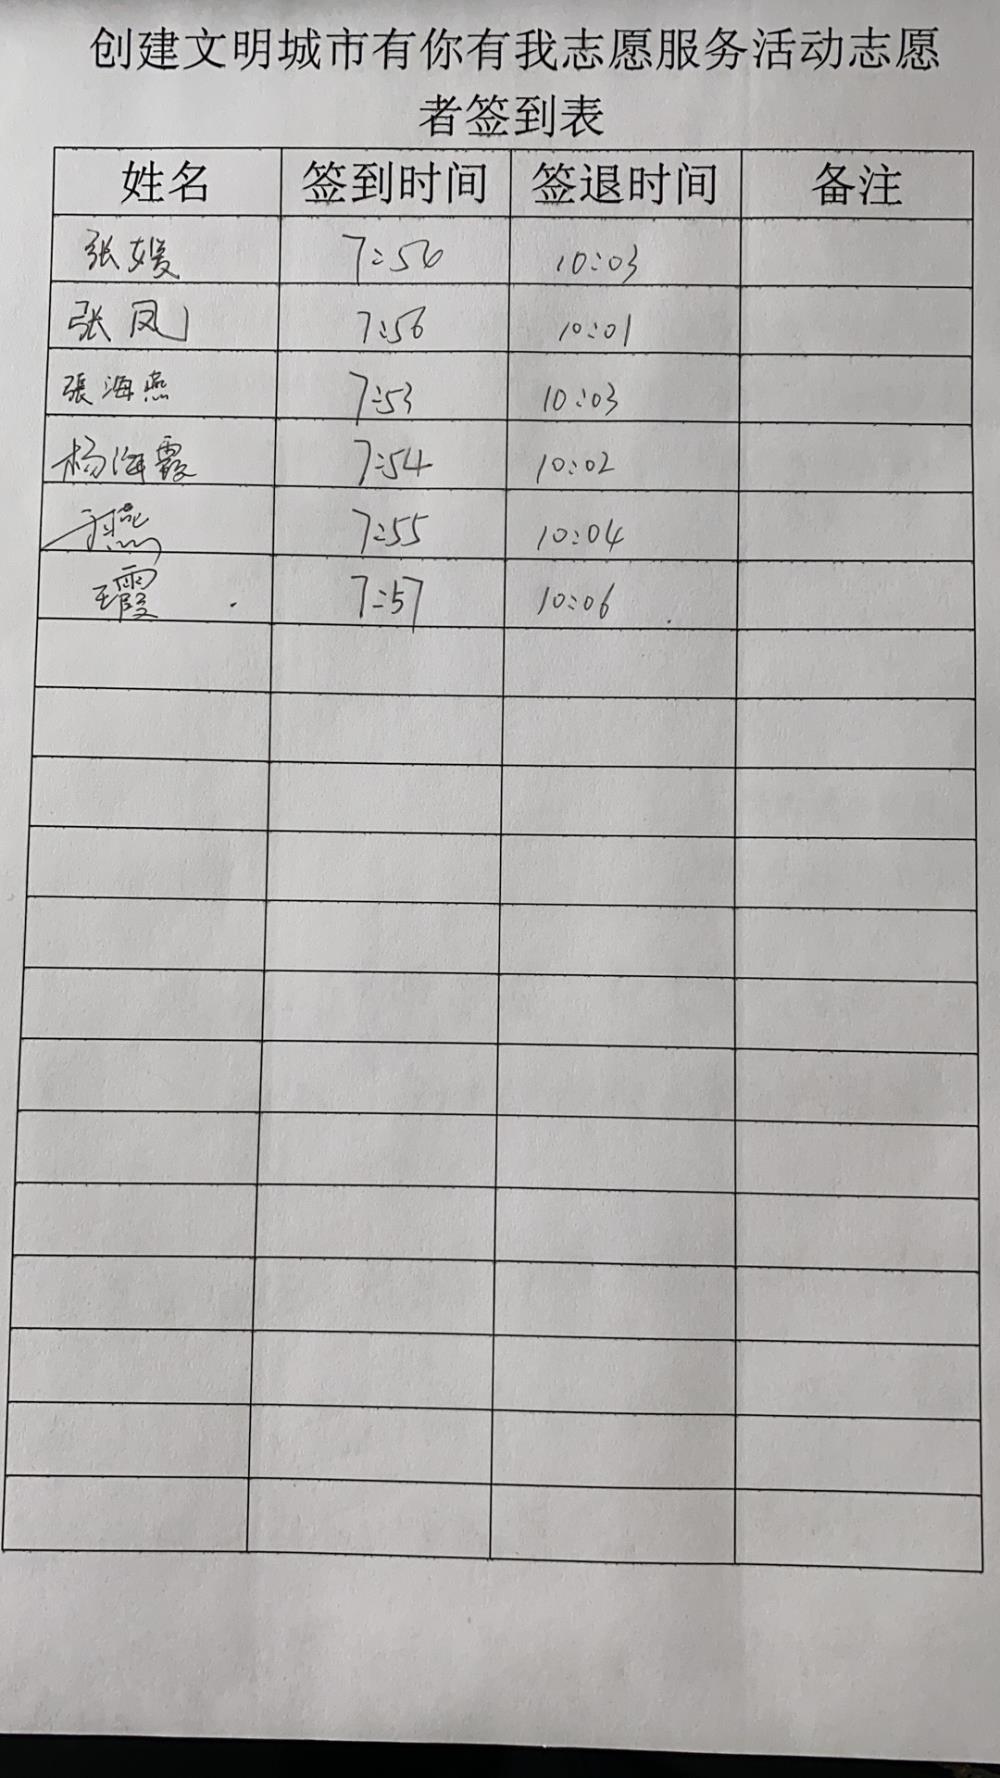 创建文明城市有你有我志愿服务活动志愿
者签到表
姓名 签到时间 签退时间 备注
张媛 7:56 10:03
张凤 7:56 10:01
張海燕 7:53 10:03
杨海霞 7:54 10:02
于燕 7:55 10:04
王霞 7:57 10:06